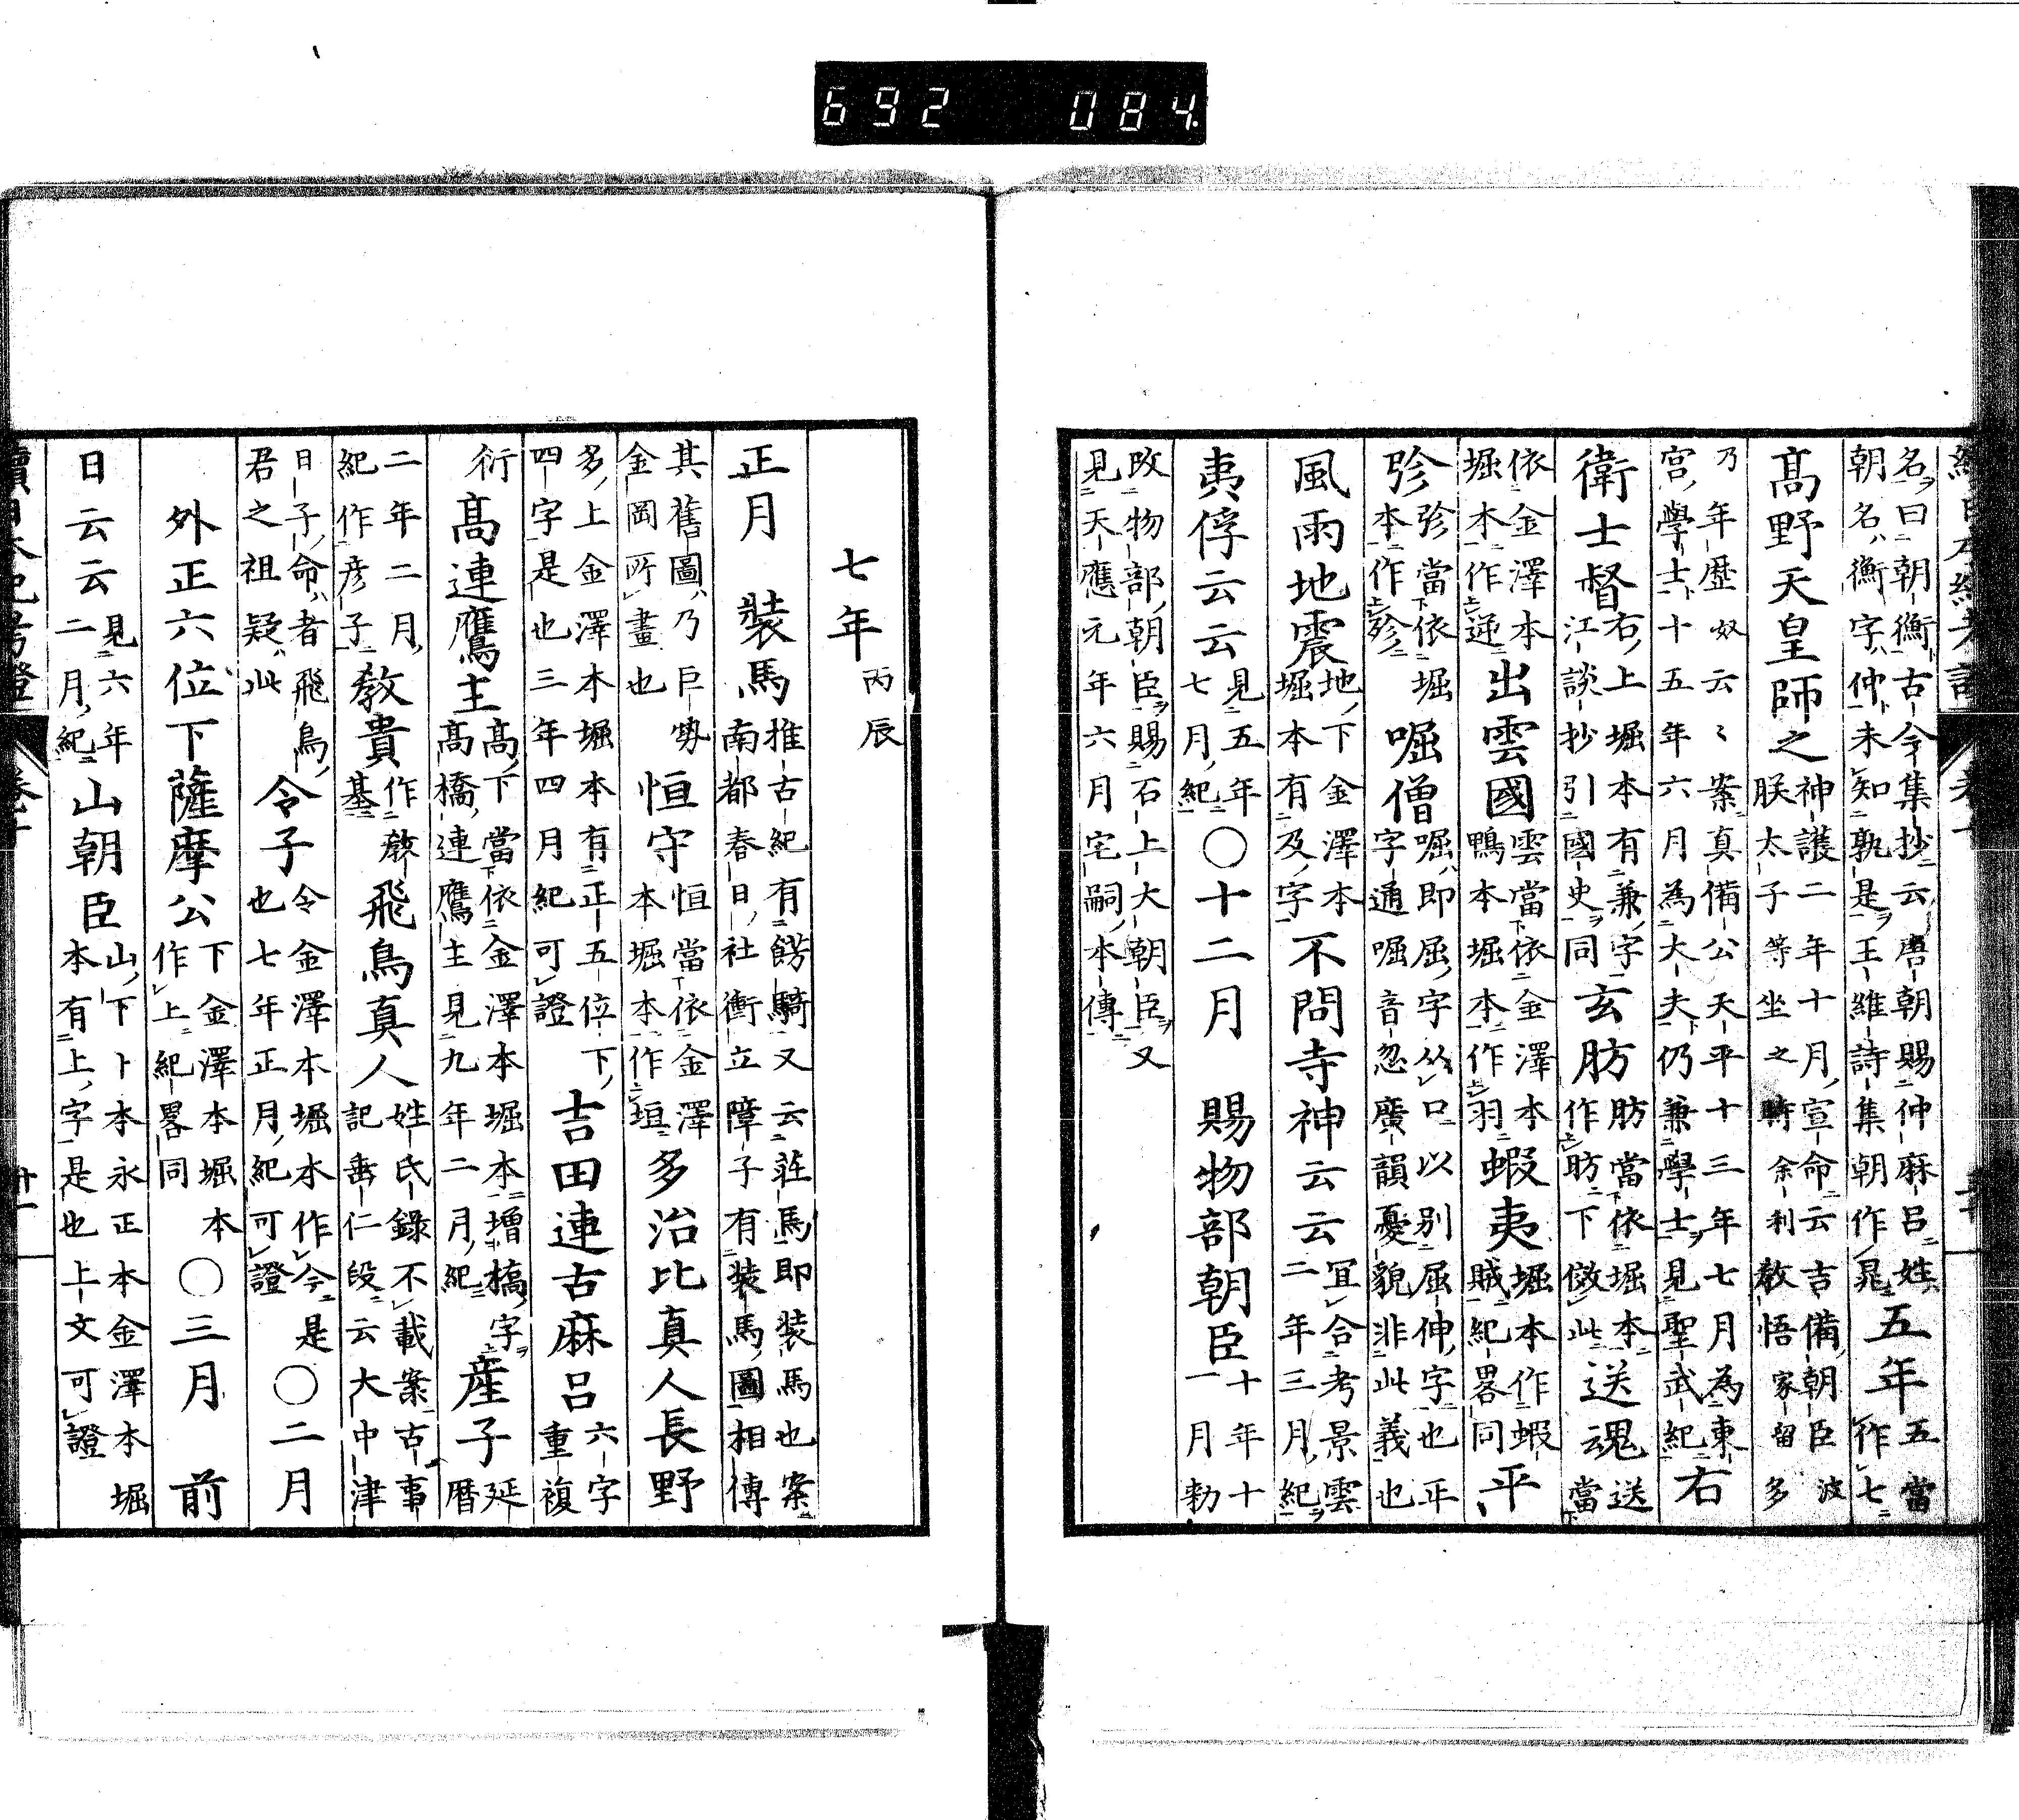 692 084
名曰朝衡古今集抄云唐朝賜仲麻呂姓
朝名衡字仲未知孰是王維詩集朝作晁
五年
五當
作七
高野天皇師之
神護二年十月宣命云吉備朝臣波
朕太子等坐之時余利敎悟家留多
乃年歷奴云〻案真備公天平十三年七月為東
宮學士十五年六月為大夫仍兼學士見聖武紀
右
衛士督
右上堀本有兼字
江談抄引國史同
玄肪
肪當依堀本
作昉下倣此
送魂
送
當
依金澤本
堀本作迊
出雲國
雲當依金澤本
鴨本堀本作羽
蝦夷
堀本作蝦
賊紀畧同
平
弥
弥當依堀
本作殄
𡀙僧
𡀙即屈字从口以別屈伸字也平
字通𡀙音忽廣韻憂貌非此義也
風雨地震
地下金澤本
堀本有及字
不問寺神云云
宜合考景雲
二年三月紀
夷俘云云
見五年
七月紀
○十二月　賜物部朝臣
十年十
一月勅
改物部朝臣賜石上大朝臣又
見天應元年六月宅嗣本傳
七年丙辰
正月　裝馬
推古紀有餝騎又云莊馬即裝馬也案
南都春日社衝立障子有裝馬圖相傳
其舊圖乃巨勢
金岡所畫也
恒守
恒當依金澤
本堀本作垣
多治比真人長野
多上金澤本堀本有正五位下
四字是也三年四月紀可證
吉田連古麻呂
六字
重複
衍
高連鷹主
高下當依金澤本堀本增橋字
高橋連鷹主見九年二月紀
產子
延
曆
二年二月
紀作彦子
敎貴
作敎
基
飛鳥真人
姓氏錄不載案古事
記垂仁段云大中津
日子命者飛鳥
君之祖疑此
令子
令金澤本堀本作今是
也七年正月紀可證
○二月
外正六位下薩摩公
下金澤本堀本
作上紀畧同
○三月　前
日云云
見六年
二月紀
山朝臣
山下卜本永正本金澤本堀
本有上字是也上文可證